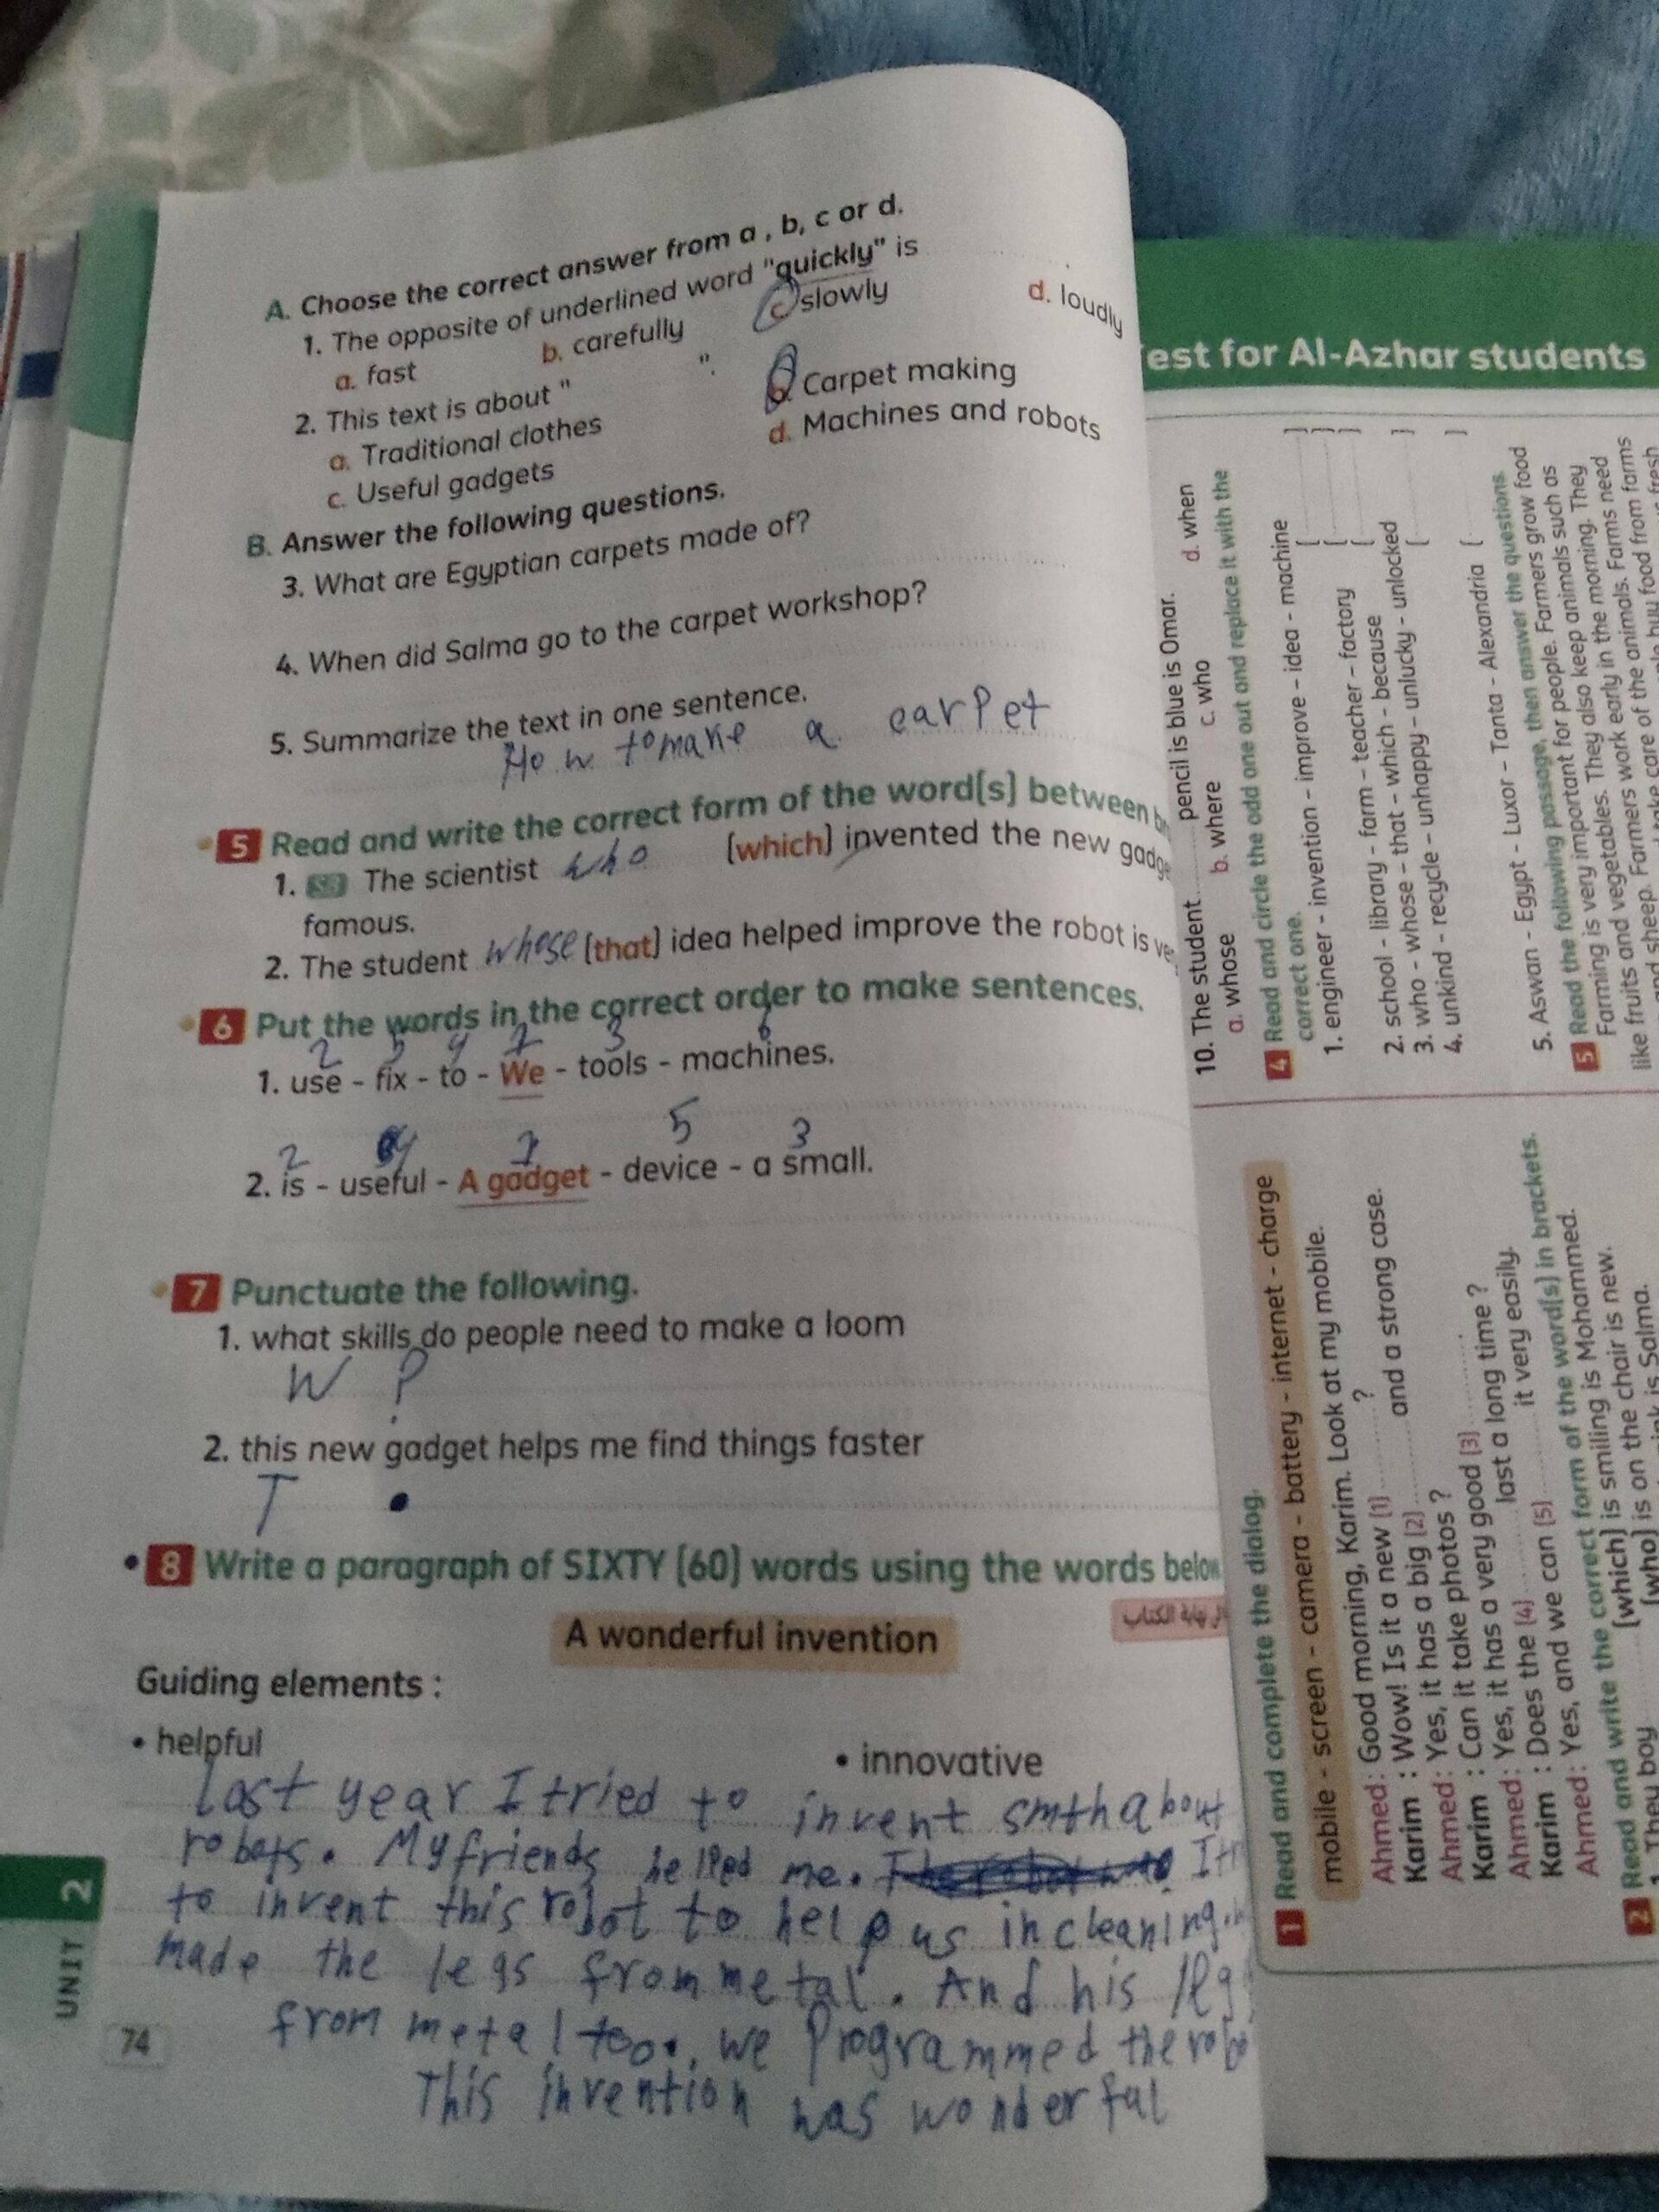 A. Choose the correct answer from a , b, c or d.
1. The opposite of underlined word "quickly" is
a. fast b. carefully c. slowly d. loudly
2. This text is about " ".
a. Traditional clothes b. Carpet making
c. Useful gadgets d. Machines and robots
B. Answer the following questions.
3. What are Egyptian carpets made of?
4. When did Salma go to the carpet workshop?
5. Summarize the text in one sentence.
How to make a carpet
5 Read and write the correct form of the word(s) between
1. The scientist who (which) invented the new
famous.
2. The student whose (that) idea helped improve the robot is
6 Put the words in the correct order to make sentences.
2 5 4 1 3 6
1. use - fix - to - We - tools - machines.
2 4 1 5 3
2. is - useful - A gadget - device - a small.
7 Punctuate the following.
1. what skills do people need to make a loom
W ?
2. this new gadget helps me find things faster
T .
8 Write a paragraph of SIXTY (60) words using the words below
A wonderful invention
Guiding elements :
• helpful • innovative
last year I tried to invent smth about
robots. My friends helped me.
to invent this robot to help us in cleaning.
made the legs from metal. And his
from metal too. we Programmed the
This invention was wonderful
UNIT 2
74
est for Al-Azhar students
1 Read and complete the dialog.
mobile - screen - camera - battery - internet - charge
Ahmed : Good morning, Karim. Look at my mobile.
Karim : Wow! Is it a new (1) ?
Ahmed : Yes, it has a big (2) and a strong case.
Karim : Can it take photos ?
Ahmed : Yes, it has a very good (3) .
Karim : Does the (4) last a long time ?
Ahmed : Yes, and we can (5) it very easily.
2 Read and write the correct form of the word(s) in brackets.
1. They boy (which) is smiling is Mohammed.
(who) is on the chair is new.
is Salma.
10. The student pencil is blue is Omar.
a. whose b. where c. who d. when
4 Read and circle the odd one out and replace it with the
correct one.
1. engineer - invention - improve - idea - machine
( )
2. school - library - farm - teacher - factory ( )
3. who - whose - that - which - because ( )
4. unkind - recycle - unhappy - unlucky - unlocked
( )
5. Aswan - Egypt - Luxor - Tanta - Alexandria ( )
5 Read the following passage, then answer the questions.
Farming is very important for people. Farmers grow food
like fruits and vegetables. They also keep animals such as
and sheep. Farmers work early in the morning. They
take care of the animals. Farms need
buy food from farms
fresh